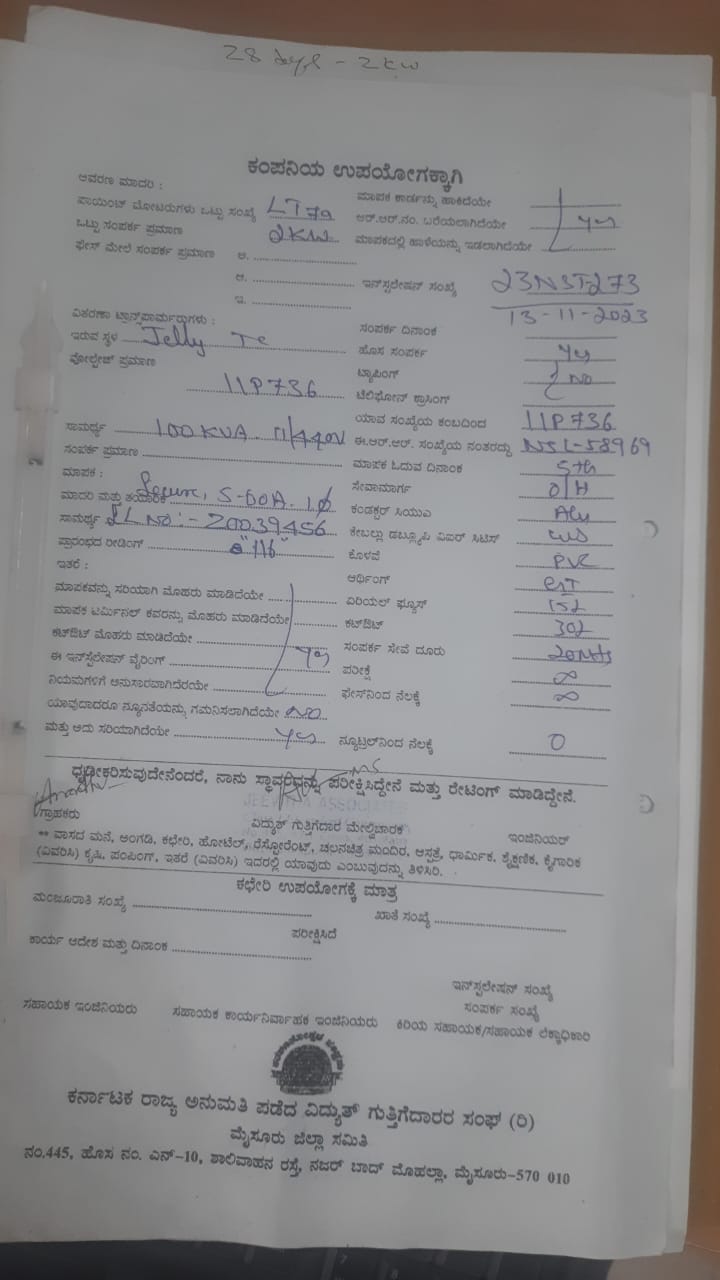 28 days - 2kw
ಕಂಪನಿಯ ಉಪಯೋಗಕ್ಕಾಗಿ
ಆವರಣ ಮಾದರಿ : ಮಾಪಕ ಕಾರ್ಡನ್ನು ಹಾಕಿದೆಯೇ
ಪಾಯಿಂಟ್ ಮೋಟರುಗಳು ಒಟ್ಟು ಸಂಖ್ಯೆ LT7a ಆರ್.ಆರ್.ನಂ. ಬರೆಯಲಾಗಿದೆಯೇ yes
ಒಟ್ಟು ಸಂಪರ್ಕ ಪ್ರಮಾಣ 2KW ಮಾಪಕದಲ್ಲಿ ಹಾಳೆಯನ್ನು ಇಡಲಾಗಿದೆಯೇ
ಫೇಸ್ ಮೇಲೆ ಸಂಪರ್ಕ ಪ್ರಮಾಣ ಅ.
ಆ. ಇನ್‌ಸ್ಟಲೇಷನ್ ಸಂಖ್ಯೆ 23NST273
ಇ. 13-11-2023
ವಿತರಣಾ ಟ್ರಾನ್ಸ್‌ಫಾರ್ಮರುಗಳು : ಸಂಪರ್ಕ ದಿನಾಂಕ
ಇರುವ ಸ್ಥಳ Jelly Tc ಹೊಸ ಸಂಪರ್ಕ yes
ವೋಲ್ಟೇಜ್ ಪ್ರಮಾಣ ಟ್ಯಾಪಿಂಗ್ NO
11P736 ಟೆಲಿಫೋನ್ ಕ್ರಾಸಿಂಗ್
ಯಾವ ಸಂಖ್ಯೆಯ ಕಂಬದಿಂದ 11P736
ಸಾಮರ್ಥ್ಯ 100KVA 11/440V ಈ.ಆರ್.ಆರ್. ಸಂಖ್ಯೆಯ ನಂತರದ್ದು NSL-58969
ಸಂಪರ್ಕ ಪ್ರಮಾಣ ಮಾಪಕ ಓದುವ ದಿನಾಂಕ 5th
ಮಾಪಕ : ಸೇವಾಮಾರ್ಗ O/H
ಮಾದರಿ ಮತ್ತು ತಯಾರಿಕೆ Secure, 5-60A. 1ϕ ಕಂಡಕ್ಟರ್ ಸಿಯುಎ Alu
ಸಾಮರ್ಥ್ಯ SL NO:- 20039456 ಕೇಬಲ್ಲು ಡಬ್ಲ್ಯೂಪಿ ವಿಐರ್ ಸಿಟಿಸ್
ಪ್ರಾರಂಭದ ರೀಡಿಂಗ್ ಕೊಳವೆ PVC
ಇತರೆ : ಆರ್ಥಿಂಗ್
ಮಾಪಕವನ್ನು ಸರಿಯಾಗಿ ಮೊಹರು ಮಾಡಿದೆಯೇ ಏರಿಯಲ್ ಫ್ಯೂಸ್
ಮಾಪಕ ಟರ್ಮಿನಲ್ ಕವರನ್ನು ಮೊಹರು ಮಾಡಿದೆಯೇ ಕಟ್‌ಔಟ್
ಕಟ್‌ಔಟ್ ಮೊಹರು ಮಾಡಿದೆಯೇ ಸಂಪರ್ಕ ಸೇವೆ ದೂರು 20Mts
ಈ ಇನ್‌ಸ್ಟಲೇಷನ್ ವೈರಿಂಗ್ yes ಪರೀಕ್ಷೆ ∞
ನಿಯಮಗಳಿಗೆ ಅನುಸಾರವಾಗಿದೆರಯೇ ಫೇಸ್‌ನಿಂದ ನೆಲಕ್ಕೆ ∞
ಯಾವುದಾದರೂ ನ್ಯೂನತೆಯನ್ನು ಗಮನಿಸಲಾಗಿದೆಯೇ NO
ಮತ್ತು ಅದು ಸರಿಯಾಗಿದೆಯೇ yes ನ್ಯೂಟ್ರಲ್‌ನಿಂದ ನೆಲಕ್ಕೆ 0
ಧೃಢೀಕರಿಸುವುದೇನೆಂದರೆ, ನಾನು ಸ್ಥಾವರವನ್ನು ಪರೀಕ್ಷಿಸಿದ್ದೇನೆ ಮತ್ತು ರೇಟಿಂಗ್ ಮಾಡಿದ್ದೇನೆ.
ಗ್ರಾಹಕರು ವಿದ್ಯುತ್ ಗುತ್ತಿಗೆದಾರ ಮೇಲ್ವಿಚಾರಕ ಇಂಜಿನಿಯರ್
** ವಾಸದ ಮನೆ, ಅಂಗಡಿ, ಕಛೇರಿ, ಹೋಟೆಲ್, ರೆಸ್ಟೋರೆಂಟ್, ಚಲನಚಿತ್ರ ಮಂದಿರ, ಆಸ್ಪತ್ರೆ, ಧಾರ್ಮಿಕ, ಶೈಕ್ಷಣಿಕ, ಕೈಗಾರಿಕ
(ವಿವರಿಸಿ) ಕೃಷಿ, ಪಂಪಿಂಗ್, ಇತರೆ (ವಿವರಿಸಿ) ಇದರಲ್ಲಿ ಯಾವುದು ಎಂಬುವುದನ್ನು ತಿಳಿಸಿರಿ.
ಕಛೇರಿ ಉಪಯೋಗಕ್ಕೆ ಮಾತ್ರ
ಮಂಜೂರಾತಿ ಸಂಖ್ಯೆ ಖಾತೆ ಸಂಖ್ಯೆ
ಪರೀಕ್ಷಿಸಿದೆ
ಕಾರ್ಯ ಆದೇಶ ಮತ್ತು ದಿನಾಂಕ
ಇನ್‌ಸ್ಪಲೇಷನ್ ಸಂಖ್ಯೆ
ಸಂಪರ್ಕ ಸಂಖ್ಯೆ
ಸಹಾಯಕ ಇಂಜಿನಿಯರು ಸಹಾಯಕ ಕಾರ್ಯನಿರ್ವಾಹಕ ಇಂಜಿನಿಯರು ಕಿರಿಯ ಸಹಾಯಕ/ಸಹಾಯಕ ಲೆಕ್ಕಾಧಿಕಾರಿ
ಕರ್ನಾಟಕ ರಾಜ್ಯ ಅನುಮತಿ ಪಡೆದ ವಿದ್ಯುತ್ ಗುತ್ತಿಗೆದಾರರ ಸಂಘ (ರಿ)
ಮೈಸೂರು ಜಿಲ್ಲಾ ಸಮಿತಿ
ನಂ.445, ಹೊಸ ನಂ. ಎನ್-10, ಶಾಲಿವಾಹನ ರಸ್ತೆ, ನಜರ್ ಬಾದ್ ಮೊಹಲ್ಲಾ, ಮೈಸೂರು-570 010